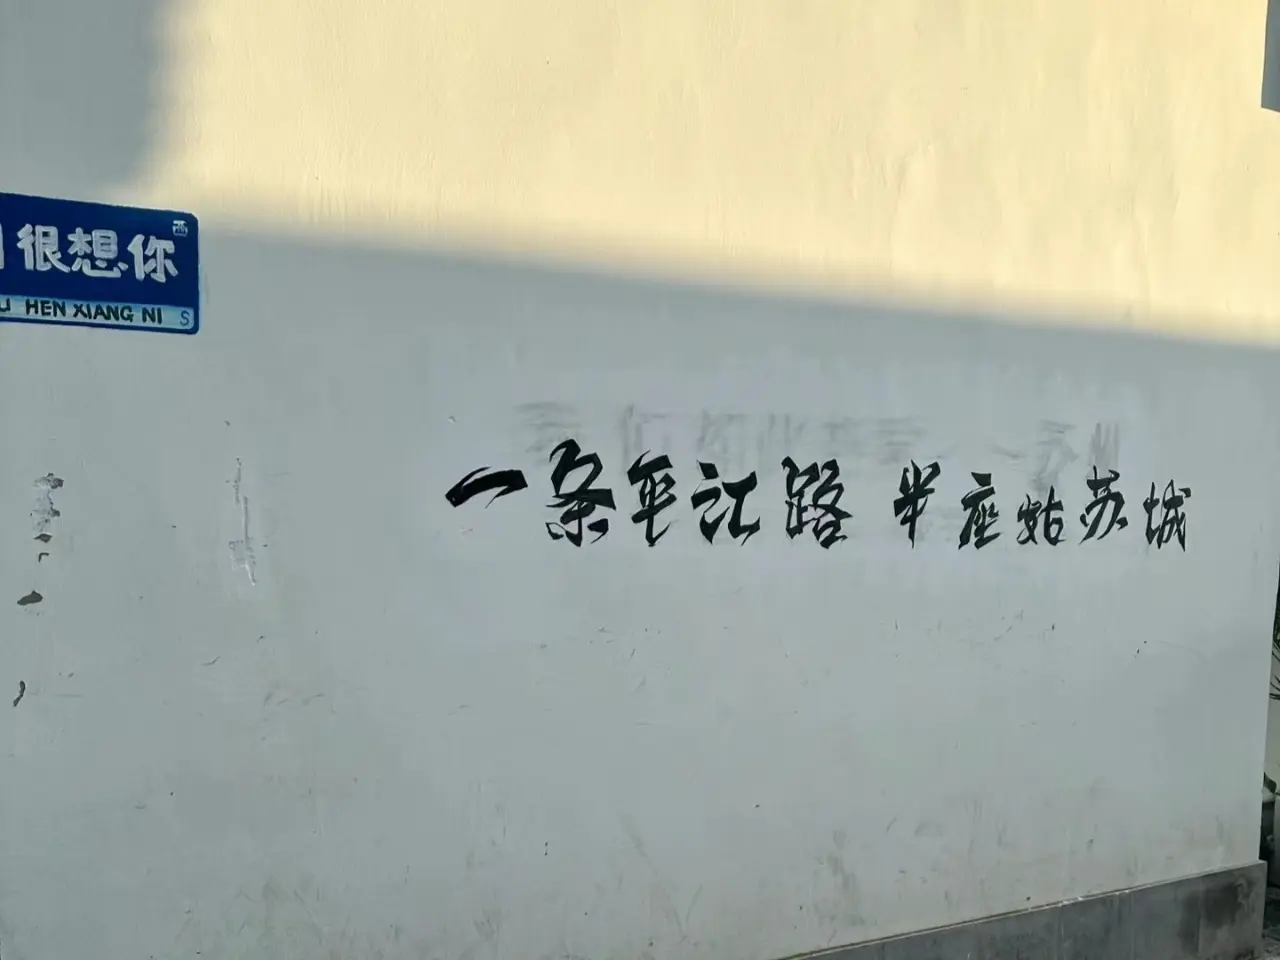 很想你
西
HEN XIANG NI S
一条平江路 半座姑苏城